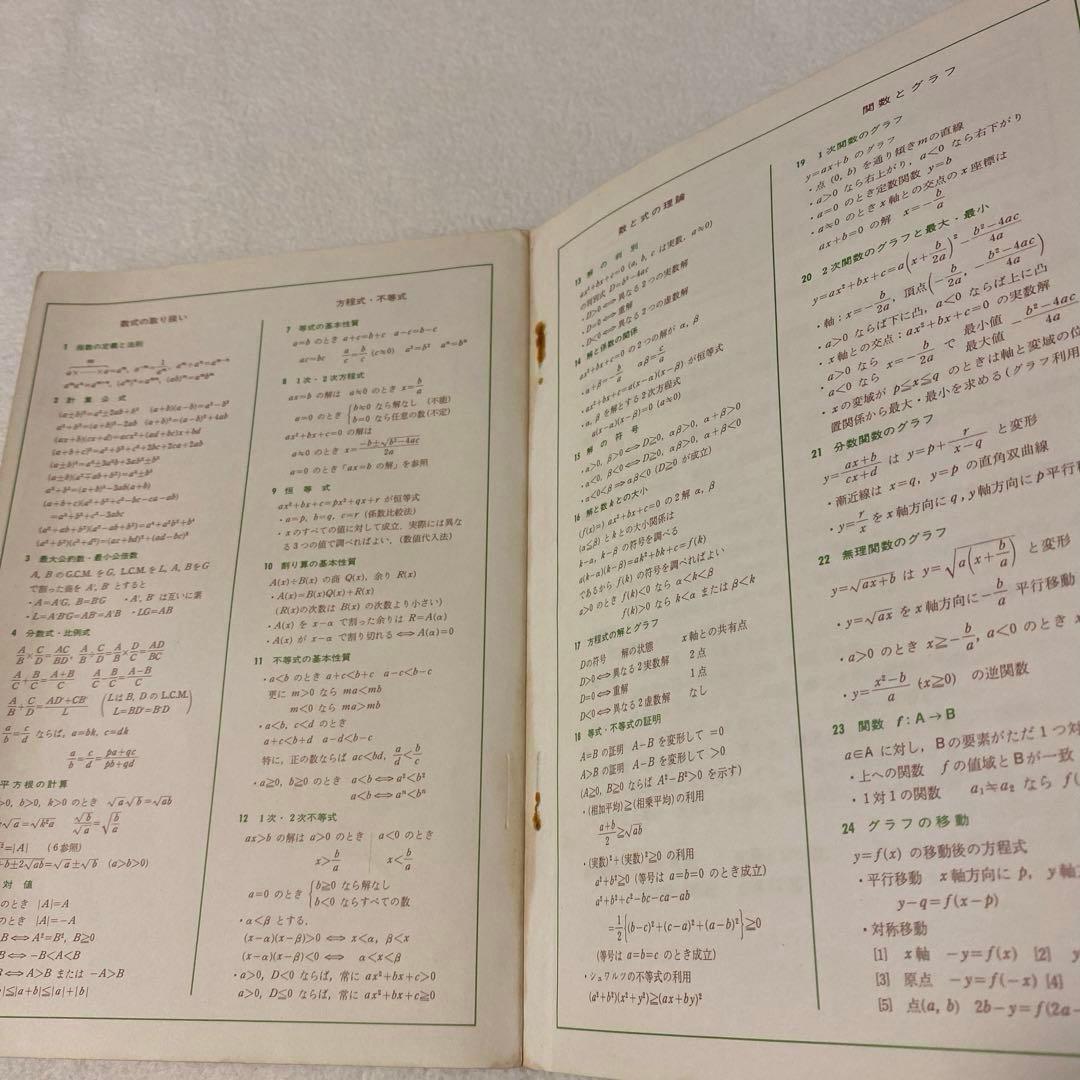 数式の取り扱い
1 指数の定義と法則
2 計算公式
(a±b)²=a²±2ab+b² (a+b)(a−b)=a²−b²
a²+b²=(a+b)²−2ab (a+b)²=(a−b)²+4ab
(ax+b)(cx+d)=acx²+(ad+bc)x+bd
(a+b+c)²=a²+b²+c²+2bc+2ca+2ab
(a±b)³=a³±3a²b+3ab²±b³
(a±b)(a²∓ab+b²)=a³±b³
a³+b³=(a+b)³−3ab(a+b)
(a+b+c)(a²+b²+c²−bc−ca−ab)
=a³+b³+c³−3abc
(a²+ab+b²)(a²−ab+b²)=a⁴+a²b²+b⁴
(a²+b²)(c²+d²)=(ac+bd)²+(ad−bc)²
3 最大公約数・最小公倍数
A, B のG.C.M. をG, L.C.M. をL, A, BをG
で割った商を A′, B′ とすると
・A=A′G, B=B′G ・A′, B′ は互いに素
・L=A′B′G=AB′=A′B ・LG=AB
4 分数式・比例式
A/B×C/D=AC/BD, A/B÷C/D=A/B×D/C=AD/BC
A/C+B/C=(A+B)/C A/C−B/C=(A−B)/C
A/B+C/D=(AD′+CB′)/L (LはB, DのL.C.M. L=BD′=B′D)
a/b=c/d ならば, a=bk, c=dk
a/b=c/d=(pa+qc)/(pb+qd)
平方根の計算
>0, b>0, k>0 のとき √a√b=√ab
√a=√k²a √b/√a=√(b/a)
²=|A| (6参照)
+b±2√ab=√a±√b (a>b>0)
対値
のとき |A|=A
のとき |A|=−A
B⟺A²=B², B≧0
B⟺−B<A<B
B⟺A>B または −A>B
|≦|a+b|≦|a|+|b|
方程式・不等式
7 等式の基本性質
a=b のとき a+c=b+c a−c=b−c
ac=bc a/c=b/c (c≒0) a²=b² aⁿ=bⁿ
8 1次・2次方程式
ax=b の解は a≒0 のとき x=b/a
a=0 のとき {b≒0 なら解なし (不能)
b=0 なら任意の数(不定)
ax²+bx+c=0 の解は
a≒0 のとき x=(−b±√b²−4ac)/2a
a=0 のとき「ax=b の解」を参照
9 恒等式
ax²+bx+c=px²+qx+r が恒等式
・a=p, b=q, c=r (係数比較法)
・xのすべての値に対して成立. 実際には異な
る3つの値で調べればよい. (数値代入法)
10 割り算の基本性質
A(x)÷B(x) の商 Q(x), 余り R(x)
・A(x)=B(x)Q(x)+R(x)
(R(x)の次数は B(x) の次数より小さい)
・A(x) を x−α で割った余りは R=A(α)
・A(x) が x−α で割り切れる⟺A(α)=0
11 不等式の基本性質
・a<b のとき a+c<b+c a−c<b−c
更に m>0 なら ma<mb
m<0 なら ma>mb
・a<b, c<d のとき
a+c<b+d a−d<b−c
特に, 正の数ならば ac<bd, a/d<b/c
・a≧0, b≧0 のとき a<b⟺a²<b²
a<b⟺aⁿ<bⁿ
12 1次・2次不等式
ax>b の解は a>0 のとき a<0 のとき
x>b/a x<b/a
a=0 のとき {b≧0 なら解なし
b<0 ならすべての数
・α<β とする.
(x−α)(x−β)>0 ⟺ x<α, β<x
(x−α)(x−β)<0 ⟺ α<x<β
・a>0, D<0 ならば, 常に ax²+bx+c>0
a>0, D≦0 ならば, 常に ax²+bx+c≧0
数と式の理論
13 解の判別
ax²+bx+c=0 (a, b, c は実数, a≒0)
の判別式 D=b²−4ac
・D>0⟺異なる2つの実数解
・D=0⟺重解
・D<0⟺異なる2つの虚数解
14 解と係数の関係
ax²+bx+c=0 の2つの解が α, β
・α+β=−b/a αβ=c/a
・ax²+bx+c=a(x−α)(x−β) が恒等式
・α, β を解とする2次方程式
a(x−α)(x−β)=0 (a≒0)
15 解の符号
・α>0, β>0⟺D≧0, αβ>0, α+β>0
・α<0, β<0⟺D≧0, αβ>0, α+β<0
・α<0<β⟺αβ<0 (D≧0 が成立)
16 解と数kとの大小
(f(x)=) ax²+bx+c=0 の2解 α, β
(α≦β) とkとの大小関係は
k−α, k−β の符号を調べる
a(k−α)(k−β)=ak²+bk+c=f(k)
であるから f(k) の符号を調べればよい
a>0 のとき f(k)<0 なら α<k<β
f(k)>0 なら k<α または β<k
17 方程式の解とグラフ
Dの符号 解の状態 x軸との共有点
D>0⟺異なる2実数解 2点
D=0⟺重解 1点
D<0⟺異なる2虚数解 なし
18 等式・不等式の証明
A=B の証明 A−B を変形して =0
A>B の証明 A−B を変形して >0
(A≧0, B≧0 ならば A²−B²>0 を示す)
・(相加平均)≧(相乗平均)の利用
(a+b)/2≧√ab
・(実数)²+(実数)²≧0 の利用
a²+b²≧0 (等号は a=b=0 のとき成立)
a²+b²+c²−bc−ca−ab
=1/2{(b−c)²+(c−a)²+(a−b)²}≧0
(等号は a=b=c のとき成立)
・シュワルツの不等式の利用
(a²+b²)(x²+y²)≧(ax+by)²
関数とグラフ
19 1次関数のグラフ
y=ax+b のグラフ
・点 (0, b) を通り傾きmの直線
・a>0 なら右上がり, a<0 なら右下がり
・a=0 のとき定数関数 y=b
・a≒0 のときx軸との交点のx座標は
ax+b=0 の解 x=−b/a
20 2次関数のグラフと最大・最小
y=ax²+bx+c=a(x+b/2a)²−(b²−4ac)/4a
・軸:x=−b/2a, 頂点(−b/2a, −(b²−4ac)/4a)
・a>0 ならば下に凸, a<0 ならば上に凸
・x軸との交点:ax²+bx+c=0 の実数解
・a>0 なら x=−b/2a で 最小値 −(b²−4ac)/4a
a<0 なら 最大値
・xの変域が p≦x≦q のときは軸と変域の位
置関係から最大・最小を求める(グラフ利用
21 分数関数のグラフ
y=(ax+b)/(cx+d) は y=p+r/(x−q) と変形
・漸近線は x=q, y=p の直角双曲線
・y=r/x をx軸方向にq, y軸方向にp平行移
22 無理関数のグラフ
y=√ax+b は y=√a(x+b/a) と変形
・y=√ax をx軸方向に−b/a 平行移動
・a>0 のとき x≧−b/a, a<0 のとき x
・y=(x²−b)/a (x≧0) の逆関数
23 関数 f:A→B
a∈A に対し, Bの要素がただ1つ対
・上への関数 fの値域とBが一致
・1対1の関数 a₁≒a₂ なら f(
24 グラフの移動
y=f(x) の移動後の方程式
・平行移動 x軸方向に p, y軸方
y−q=f(x−p)
・対称移動
[1] x軸 −y=f(x) [2] y
[3] 原点 −y=f(−x) [4]
[5] 点(a, b) 2b−y=f(2a−